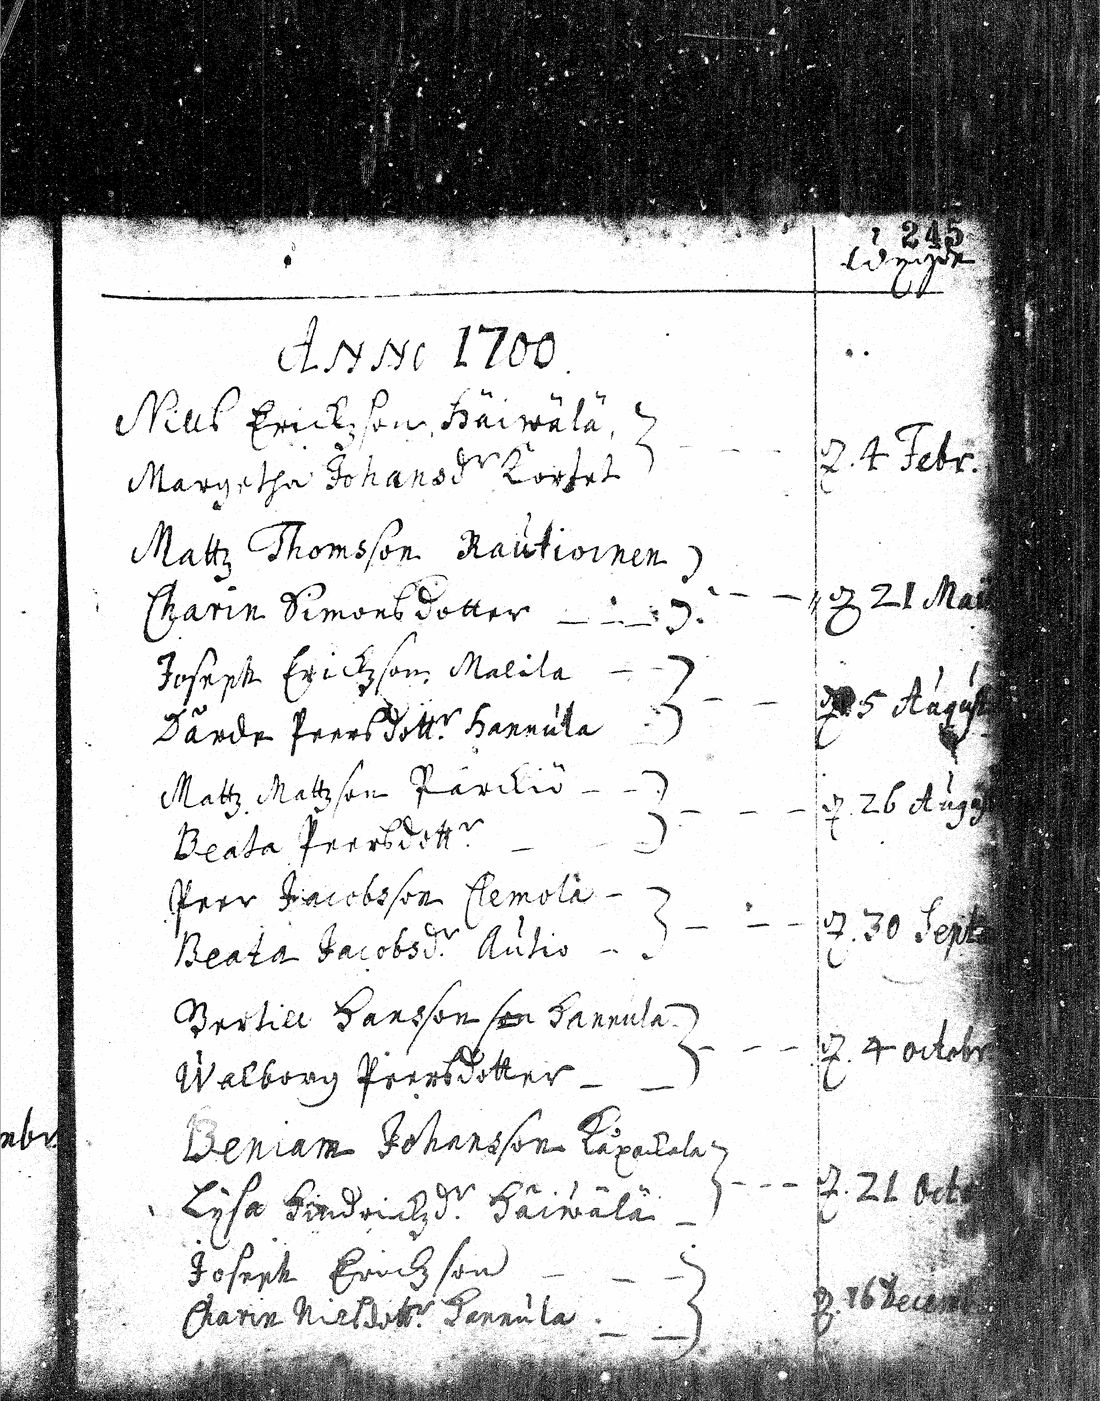 245
ANNO 1700.
Nills Erickzson Häiwälä
Margetha Johansdr Kortet
d. 4 Febr.
Mattz Thomsson Rautioinen
Charin Simonsdotter
d 21 Mai
Joseph Erickzson Malila
Dårde Peersdottr Hannula
d. 5 August
Mattz Mattzson Parckiö
Beata Peersdottr
d. 26 Augus
Peer Jacobsson Clemola
Beata Jacobsdr Autio
d. 30 Septe
Bertill Hansson Hannula
Walborg Peersdotter
d. 4 octobr
Beniam Johansson
Lysa Hindrickzdr Häiwälä
d. 21 Octo
Joseph Erickzson
Charin Nielsdottr Hannula
d. 16 Decemb
mbr